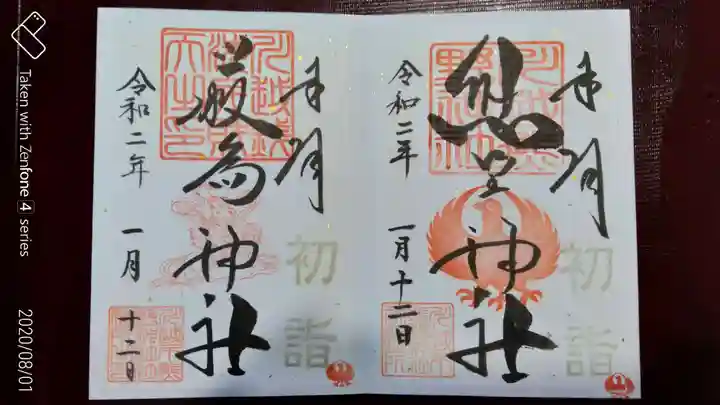 奉拝
初詣
熊野神社
令和二年
一月十二日
奉拝
初詣
厳島神社
令和二年
一月十二日
Taken with Zenfone 4 series
2020/08/01